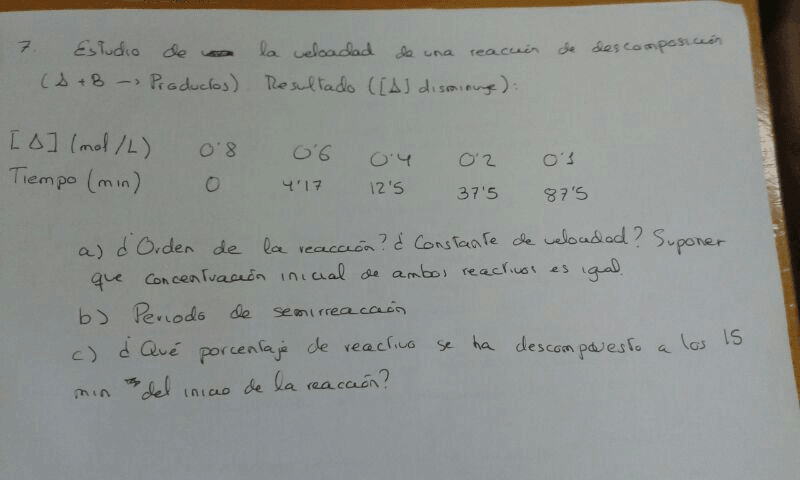 7. Estudio de la velocidad de una reacción de descomposición
(A + B → Productos). Resultado ([A] disminuye):
[A] (mol/L) 0'8 0'6 0'4 0'2 0'1
Tiempo (min) 0 4'17 12'5 37'5 87'5
a) ¿Orden de la reacción? ¿Constante de velocidad? Suponer
que concentración inicial de ambos reactivos es igual.
b) Periodo de semirreacción
c) ¿Qué porcentaje de reactivo se ha descompuesto a los 15
min del inicio de la reacción?